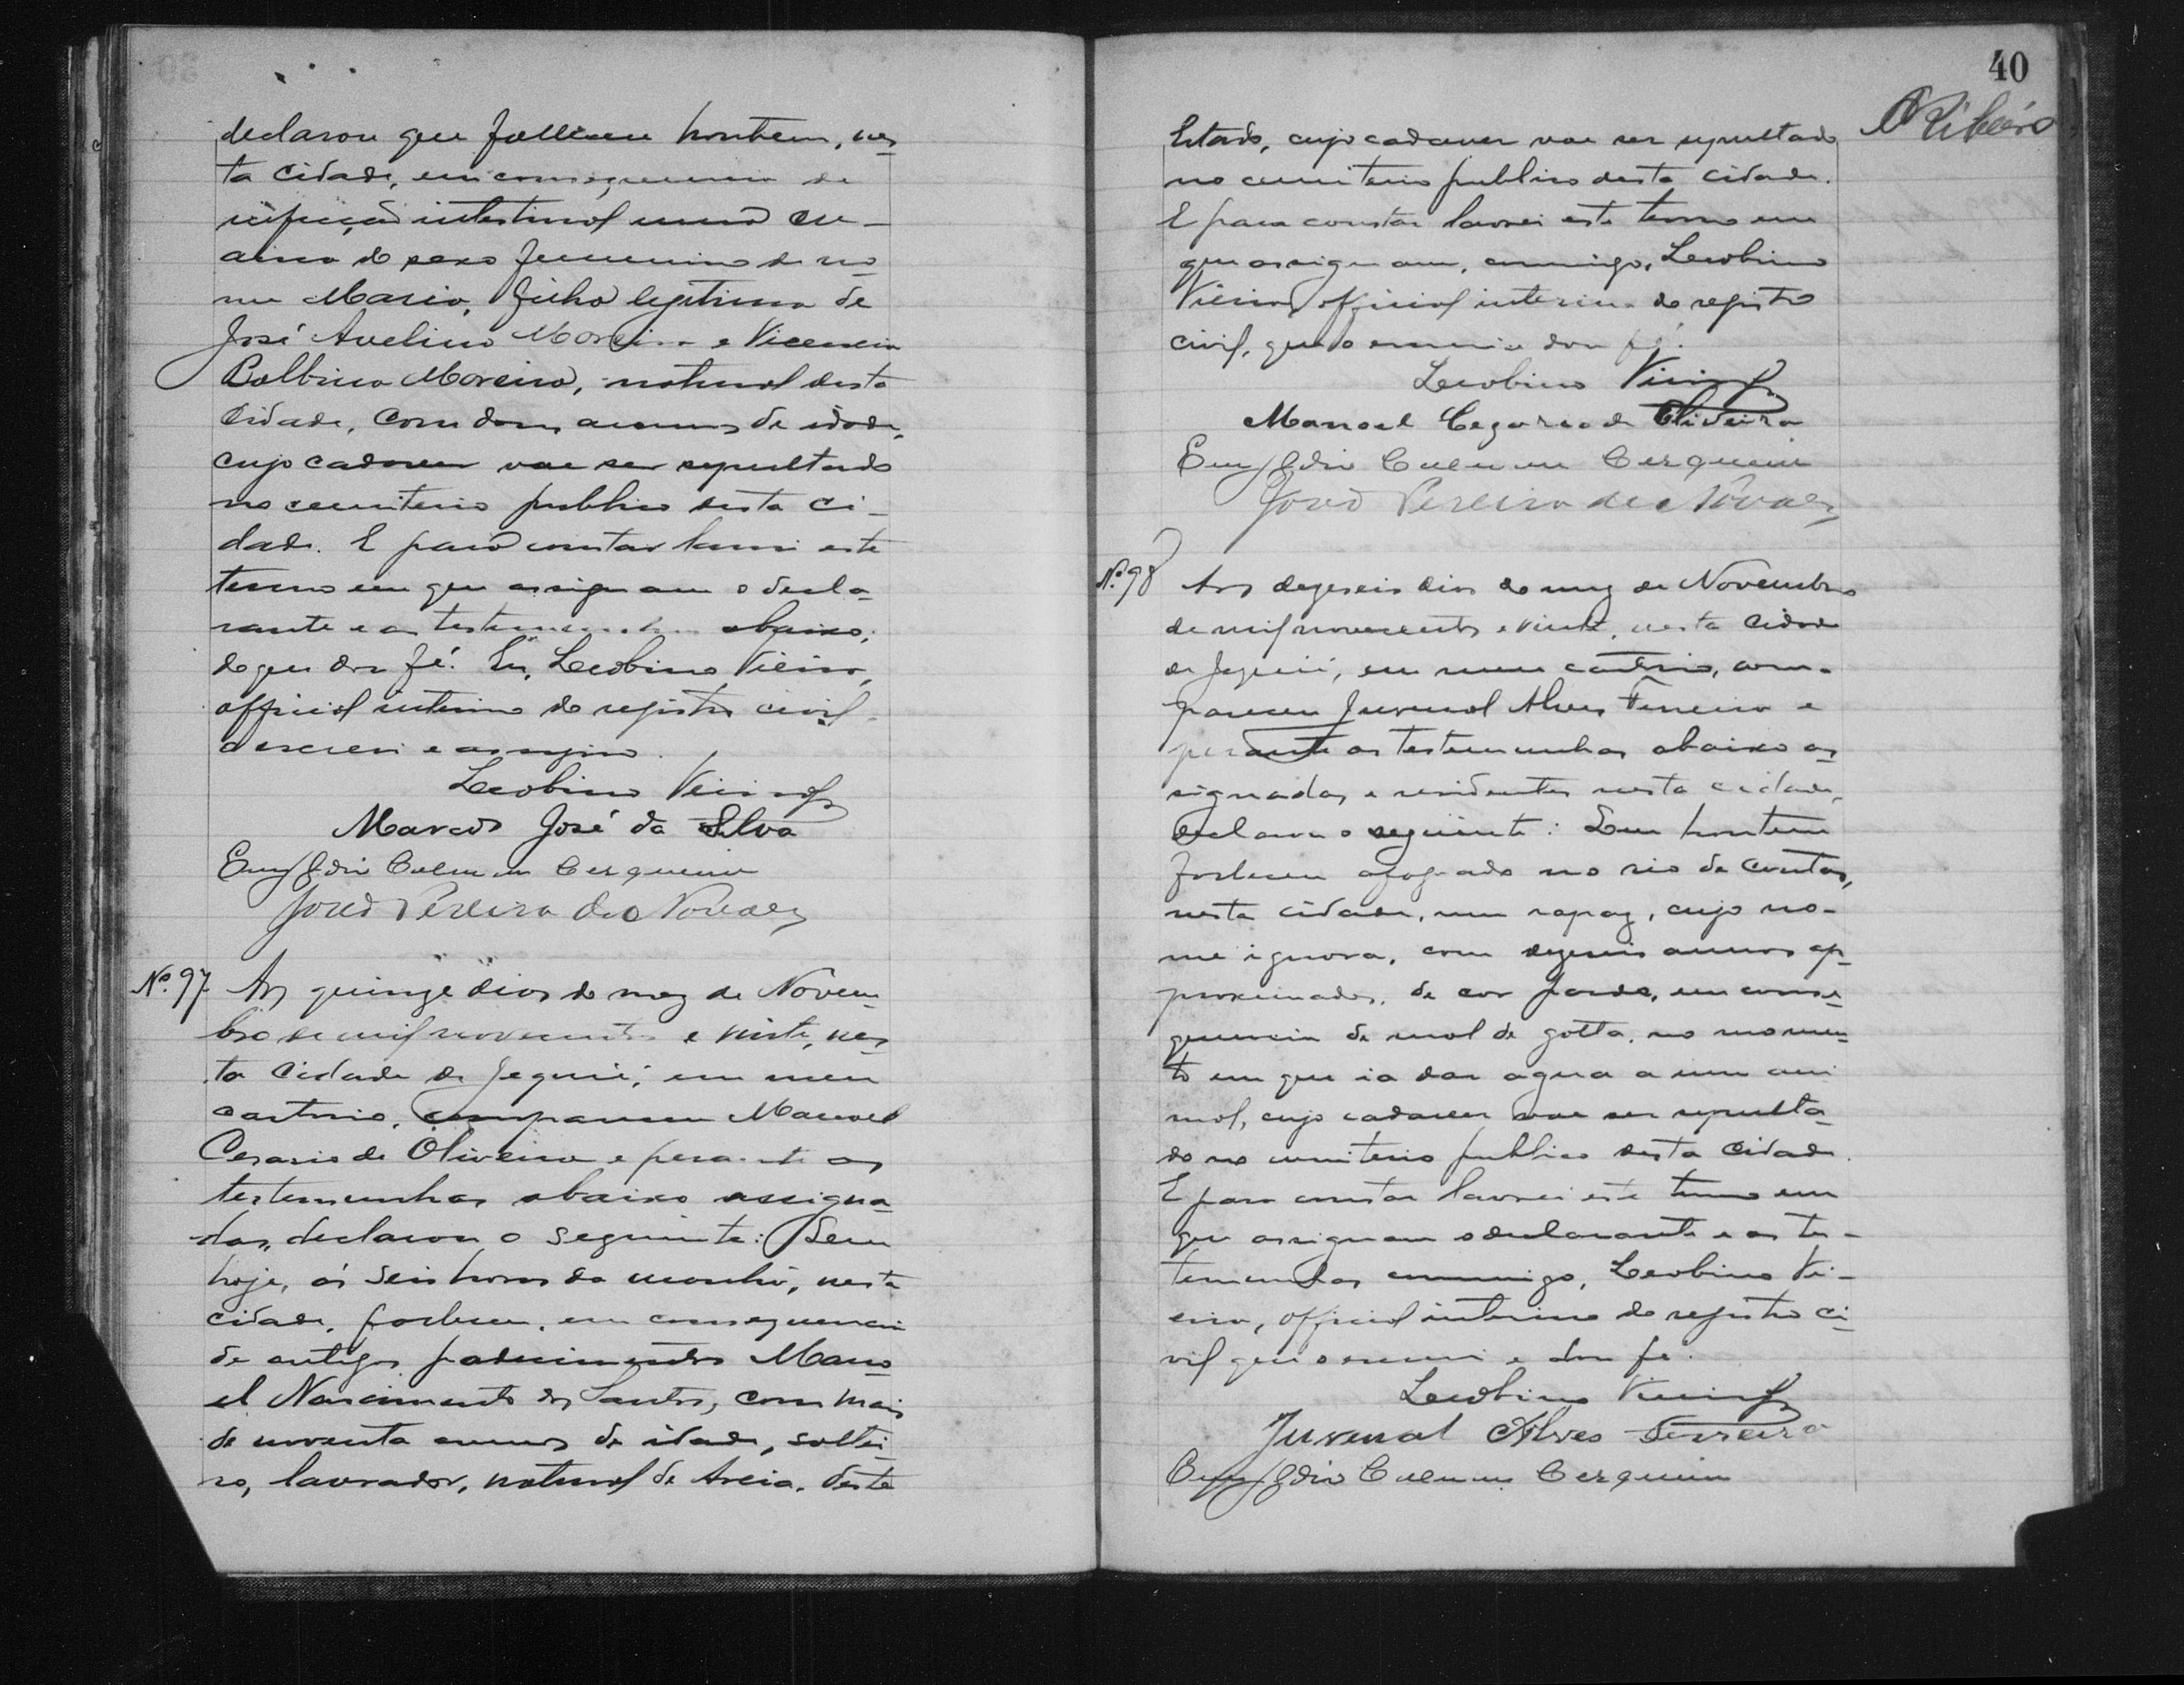 declarou que falleceu hontem, nes
ta cidade, em consequencia de
infecção intestinal uma cre-
ança do sexo femenino de no
me Maria, filha legitima de
José Avelino Moreira e Vicencia
Balbina Moreira, natural desta
Cidade, com dous annos de idade,
cujo cadaver vae ser sepultado
no cemiterio publico desta ci-
dade. E para constar lavrei este
termo em que assignam o decla-
rante e as testemunhas abaixo,
do que dou fé. Eu, Leobino Vieira,
official interino do registro civil
o escrevi e assigno.
Leobino Vieira
Marcos José da Silva
Emygdio Cerqueira
José Pereira de Novaes
Nº 97 Aos quinze dias do mez de Novem
bro de mil novecentos e vinte, nes
ta Cidade de Jequié, em meu
cartorio, compareceu Manoel
Cesario de Oliveira e perante as
testemunhas abaixo assigna-
das, declarou o seguinte: Que
hoje, ás seis horas da manhã, nesta
cidade, falleceu, em consequencia
de antigos padecimentos Mano
el Nascimento dos Santos, com mais
de noventa annos de idade, soltei
ro, lavrador, natural de Areia, deste
40
Ribeiro
Estado, cujo cadaver vae ser sepultado
no cemiterio publico desta cidade.
E para constar lavrei este termo em
que assignam, commigo, Leobino
Vieira, official interino do registro
civil, que o escrevi e dou fé.
Leobino Vieira
Manoel Cezario de Oliveira
Emygdio Cerqueira
José Pereira de Novaes
Nº 98 Aos dezeseis dias do mez de Novembro
de mil novecentos e vinte, nesta Cidade
de Jequié, em meu cartorio, com-
pareceu Juvenal Alves Ferreira e
perante as testemunhas abaixo as
signadas e residentes nesta cidade,
declarou o seguinte: Que hontem
falleceu afogado no rio de Contas,
nesta cidade, um rapaz, cujo no-
me ignora, com dezeseis annos ap-
proximados, de cor parda, em conse-
quencia de mal de gotta, no momen
to em que ia dar agua a um ani
mal, cujo cadaver vae ser sepulta
do no cemiterio publico desta Cidade.
E para constar lavrei este termo em
que assignam o declarante e as tes-
temunhas commigo, Leobino Vi-
eira, official interino do registro ci-
vil que o escrevi e dou fé.
Leobino Vieira
Juvenal Alves Ferreira
Emygdio Cerqueira